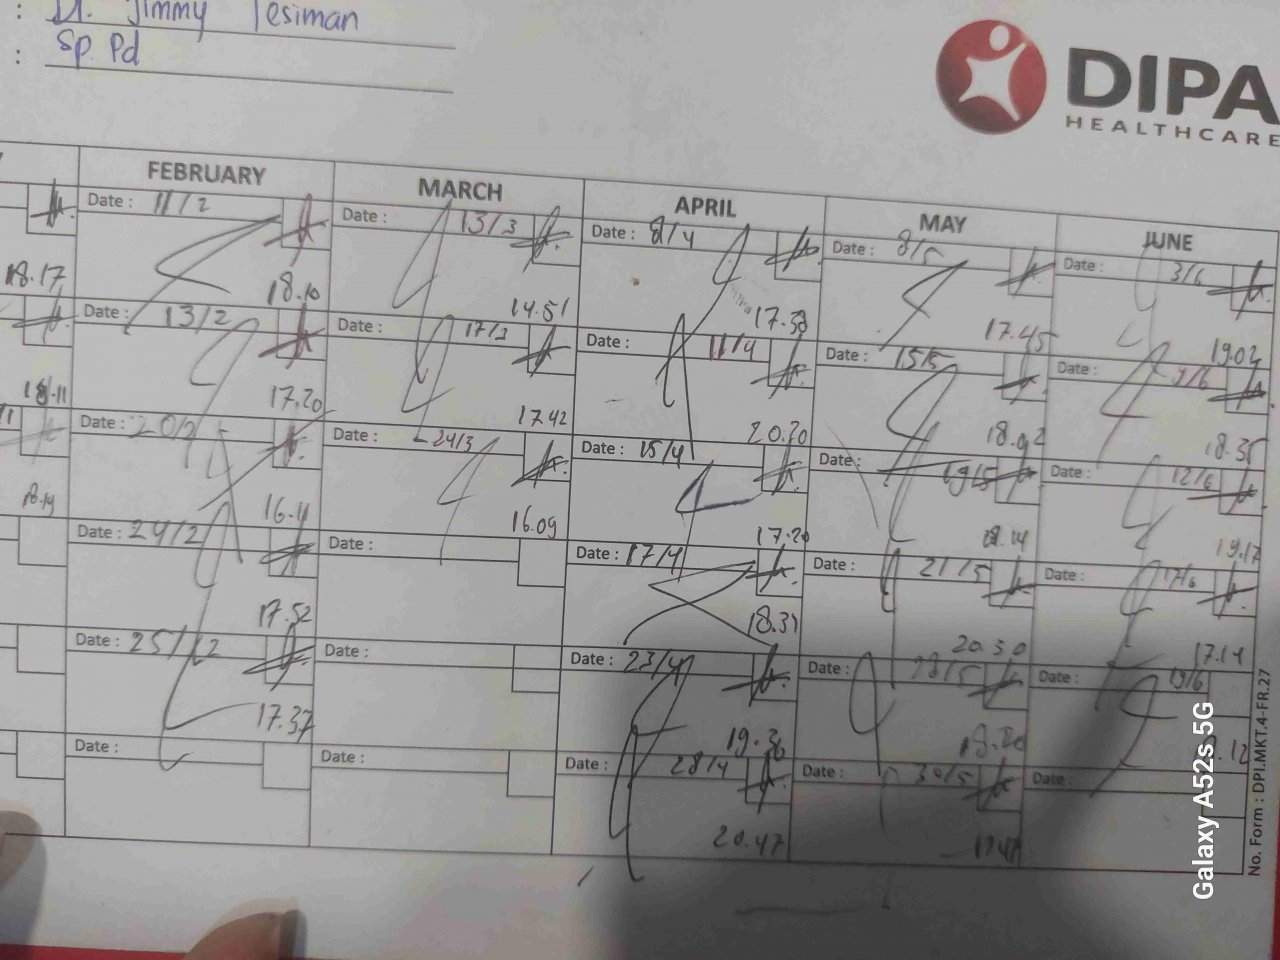 : Dr. Jimmy Tesiman
: Sp. Pd
DIPA
HEALTHCARE
FEBRUARY MARCH APRIL MAY JUNE
Date : 11/2 Date : 13/3 Date : 8/4 Date : 8/5 Date : 3/6
18.17 18.10 14.51 17.38 17.45 19.02
Date : 13/2 Date : 17/3 Date : 11/4 Date : 15/5 Date : 9/6
18.11 17.20 17.42 20.20 18.02 18.35
Date : 20/2 Date : 24/3 Date : 15/4 Date : 19/5 Date : 12/6
18.19 16.11 16.09 17.20 18.14 19.17
Date : 24/2 Date : Date : 17/4 Date : 21/5 Date : 17/6
17.52 18.31 20.30 17.14
Date : 25/2 Date : Date : 23/4 Date : Date : 19/6
17.37 19.36
Date : Date : Date : 28/4 Date : 30/5 Date :
20.47
No. Form : DPI.MKT.4-FR.27
Galaxy A52s 5G